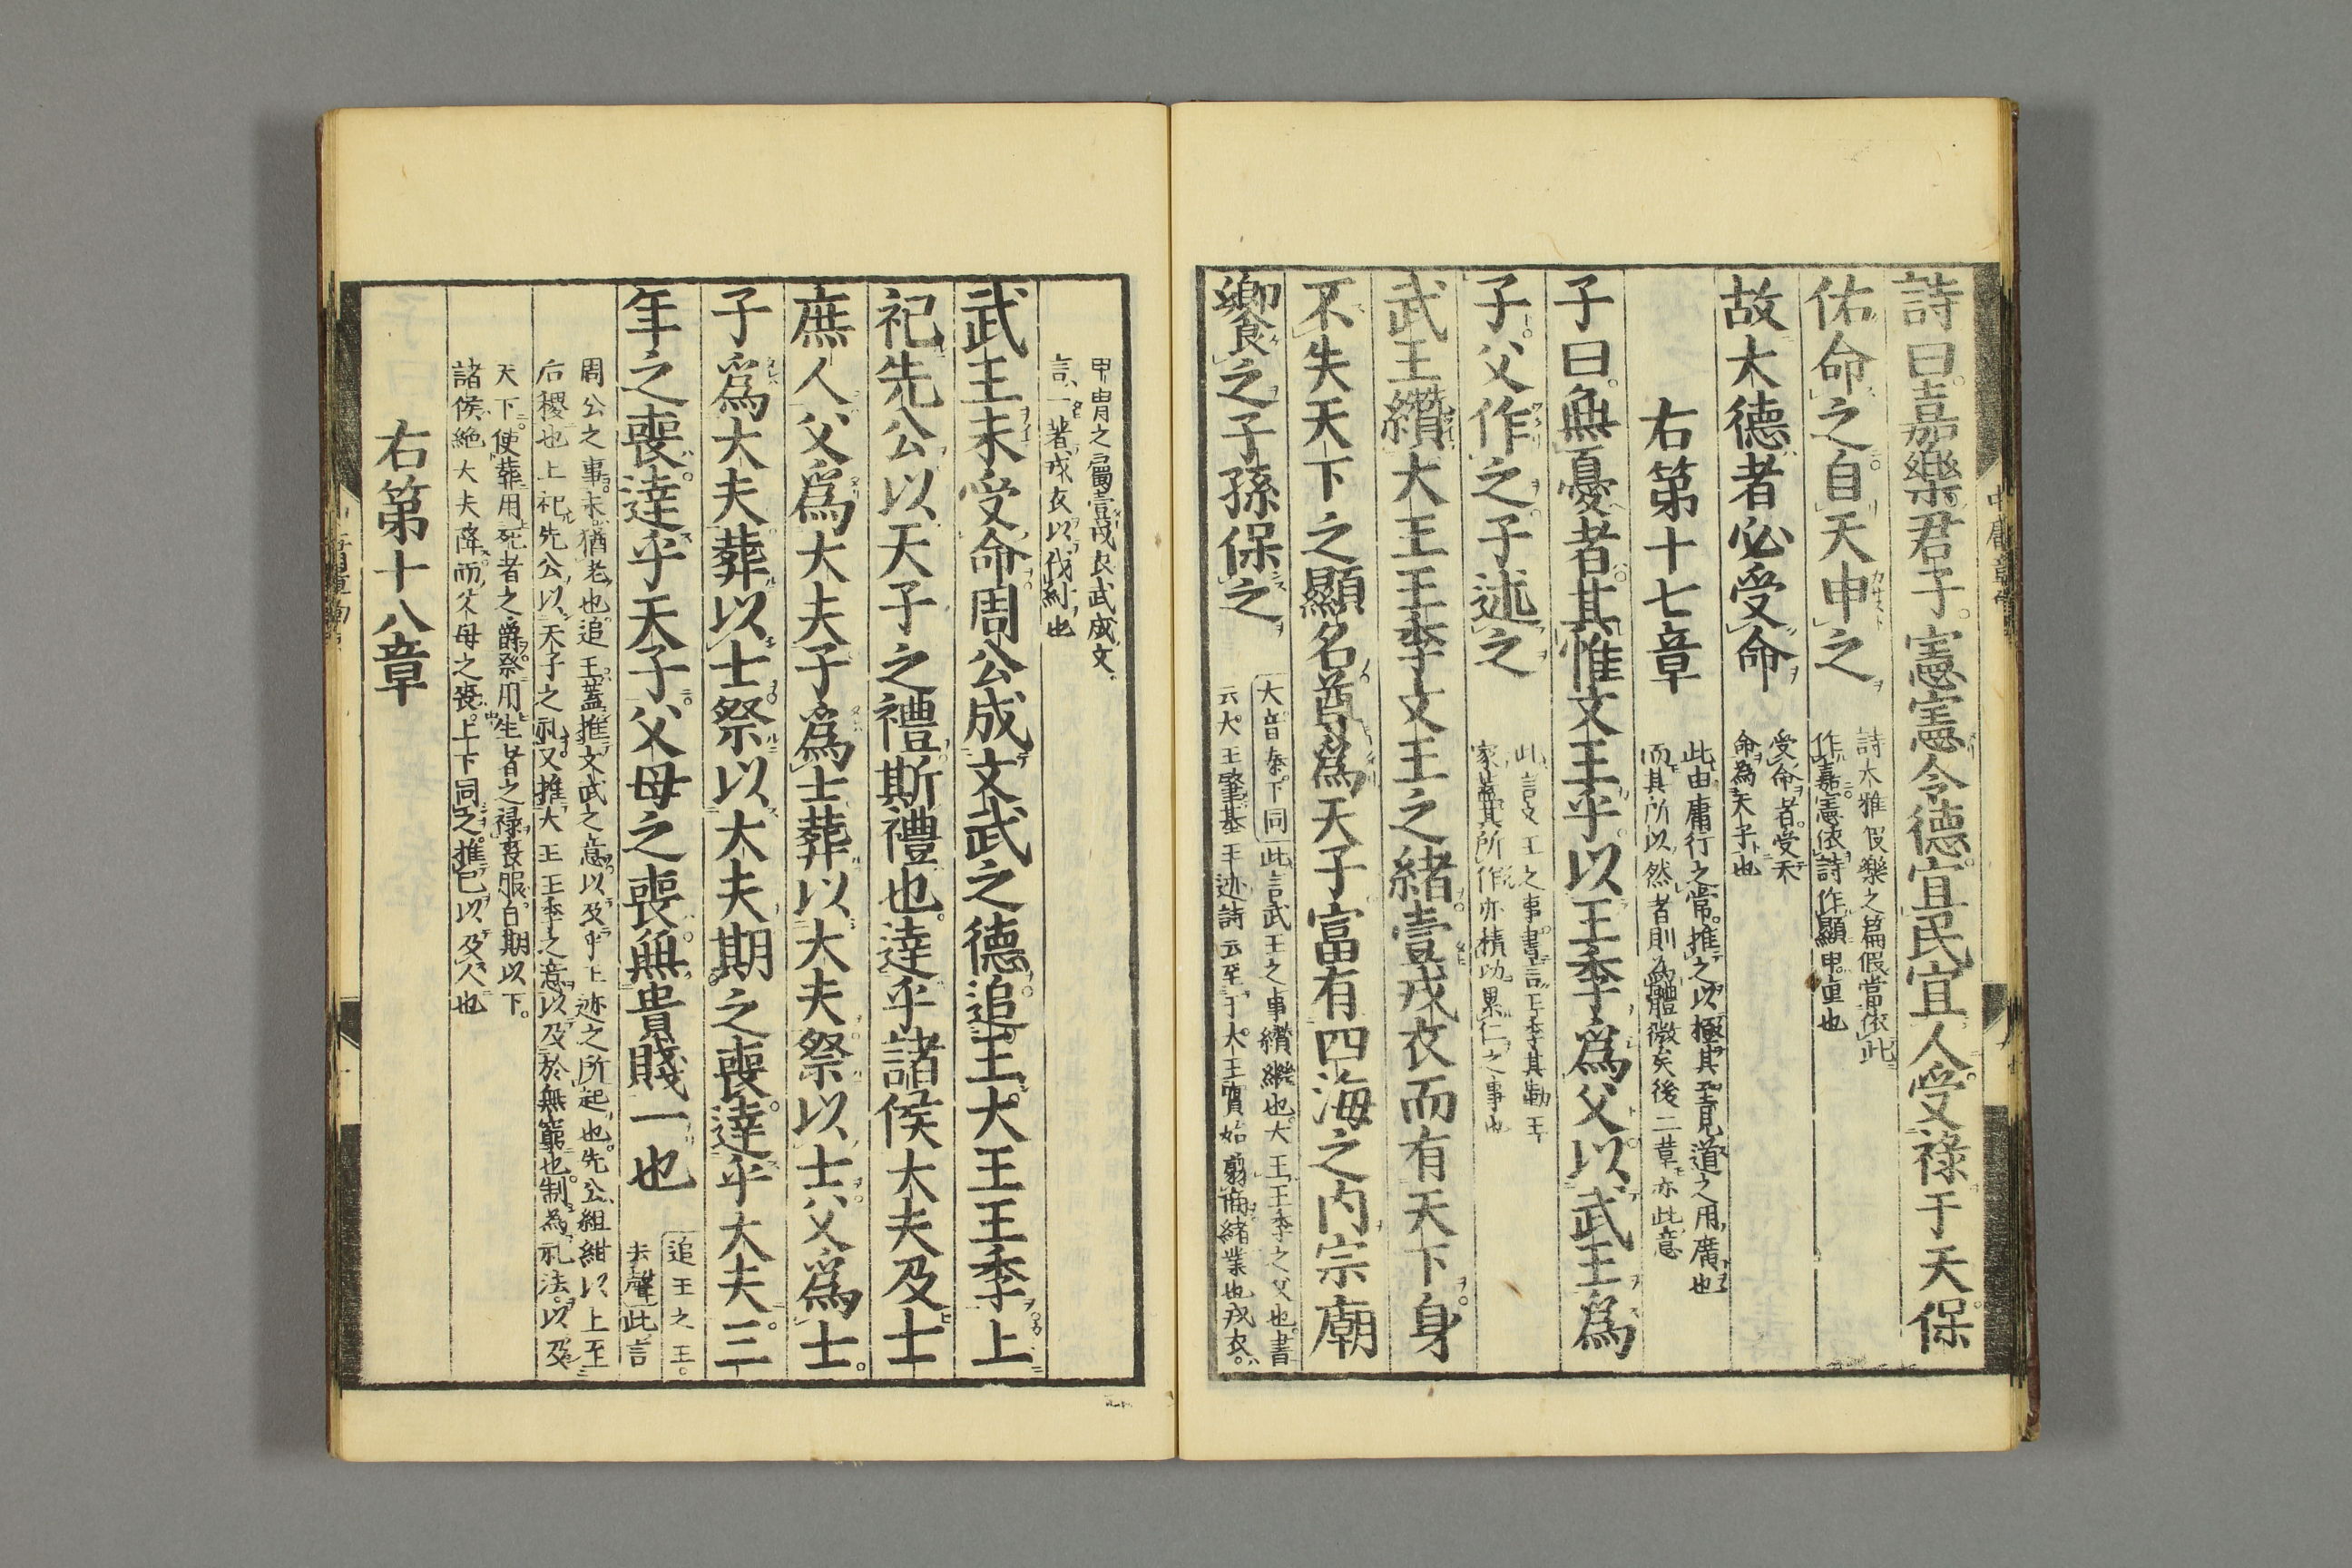 詩曰嘉樂君子憲憲令德宜民宜人受祿于天保
佑命之自天申之
詩大雅假樂之篇假當依此
作嘉憲依詩作顯申重也
故大德者必受命
受命者受天
命為天子也
右第十七章
此由庸行之常推之以極其至見道之用廣也
而其所以然者則為體微矣後二章亦此意
子曰無憂者其惟文王乎以王季爲父以武王爲
子父作之子述之
此言文王之事書言王季其勤王
家蓋其所作亦積功累仁之事也
武王纘大王王季文王之緒壹戎衣而有天下身
不失天下之顯名尊爲天子富有四海之内宗廟
饗之子孫保之
大音泰下同此言武王之事纘繼也大王王季之父也書
云大王肇基王迹詩云至于大王實始翦商緒業也戎衣
甲冑之屬壹戎衣武成文
言一著戎衣以伐紂也
武王末受命周公成文武之德追王大王王季上
祀先公以天子之禮斯禮也達乎諸侯大夫及士
庶人父爲大夫子爲士葬以大夫祭以士父爲士
子爲大夫葬以士祭以大夫期之喪達乎大夫三
年之喪達乎天子父母之喪無貴賤一也
追王之王
去聲此言
周公之事末猶老也追王蓋推文武之意以及乎王迹之所起也先公組紺以上至
后稷也上祀先公以天子之礼又推大王王季之意以及於無窮也制為礼法以及
天下使葬用死者之爵祭用生者之禄喪服自期以下
諸侯絶大夫降而父母之喪上下同之推己以及人也
右第十八章